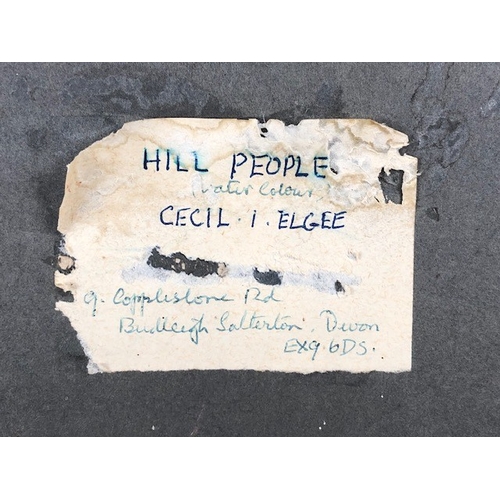 HILL PEOPLE.
(Water Colour)
CECIL. I. ELGEE
9. Copplestone Rd
Budleigh Salterton. Devon
EX9.6DS.